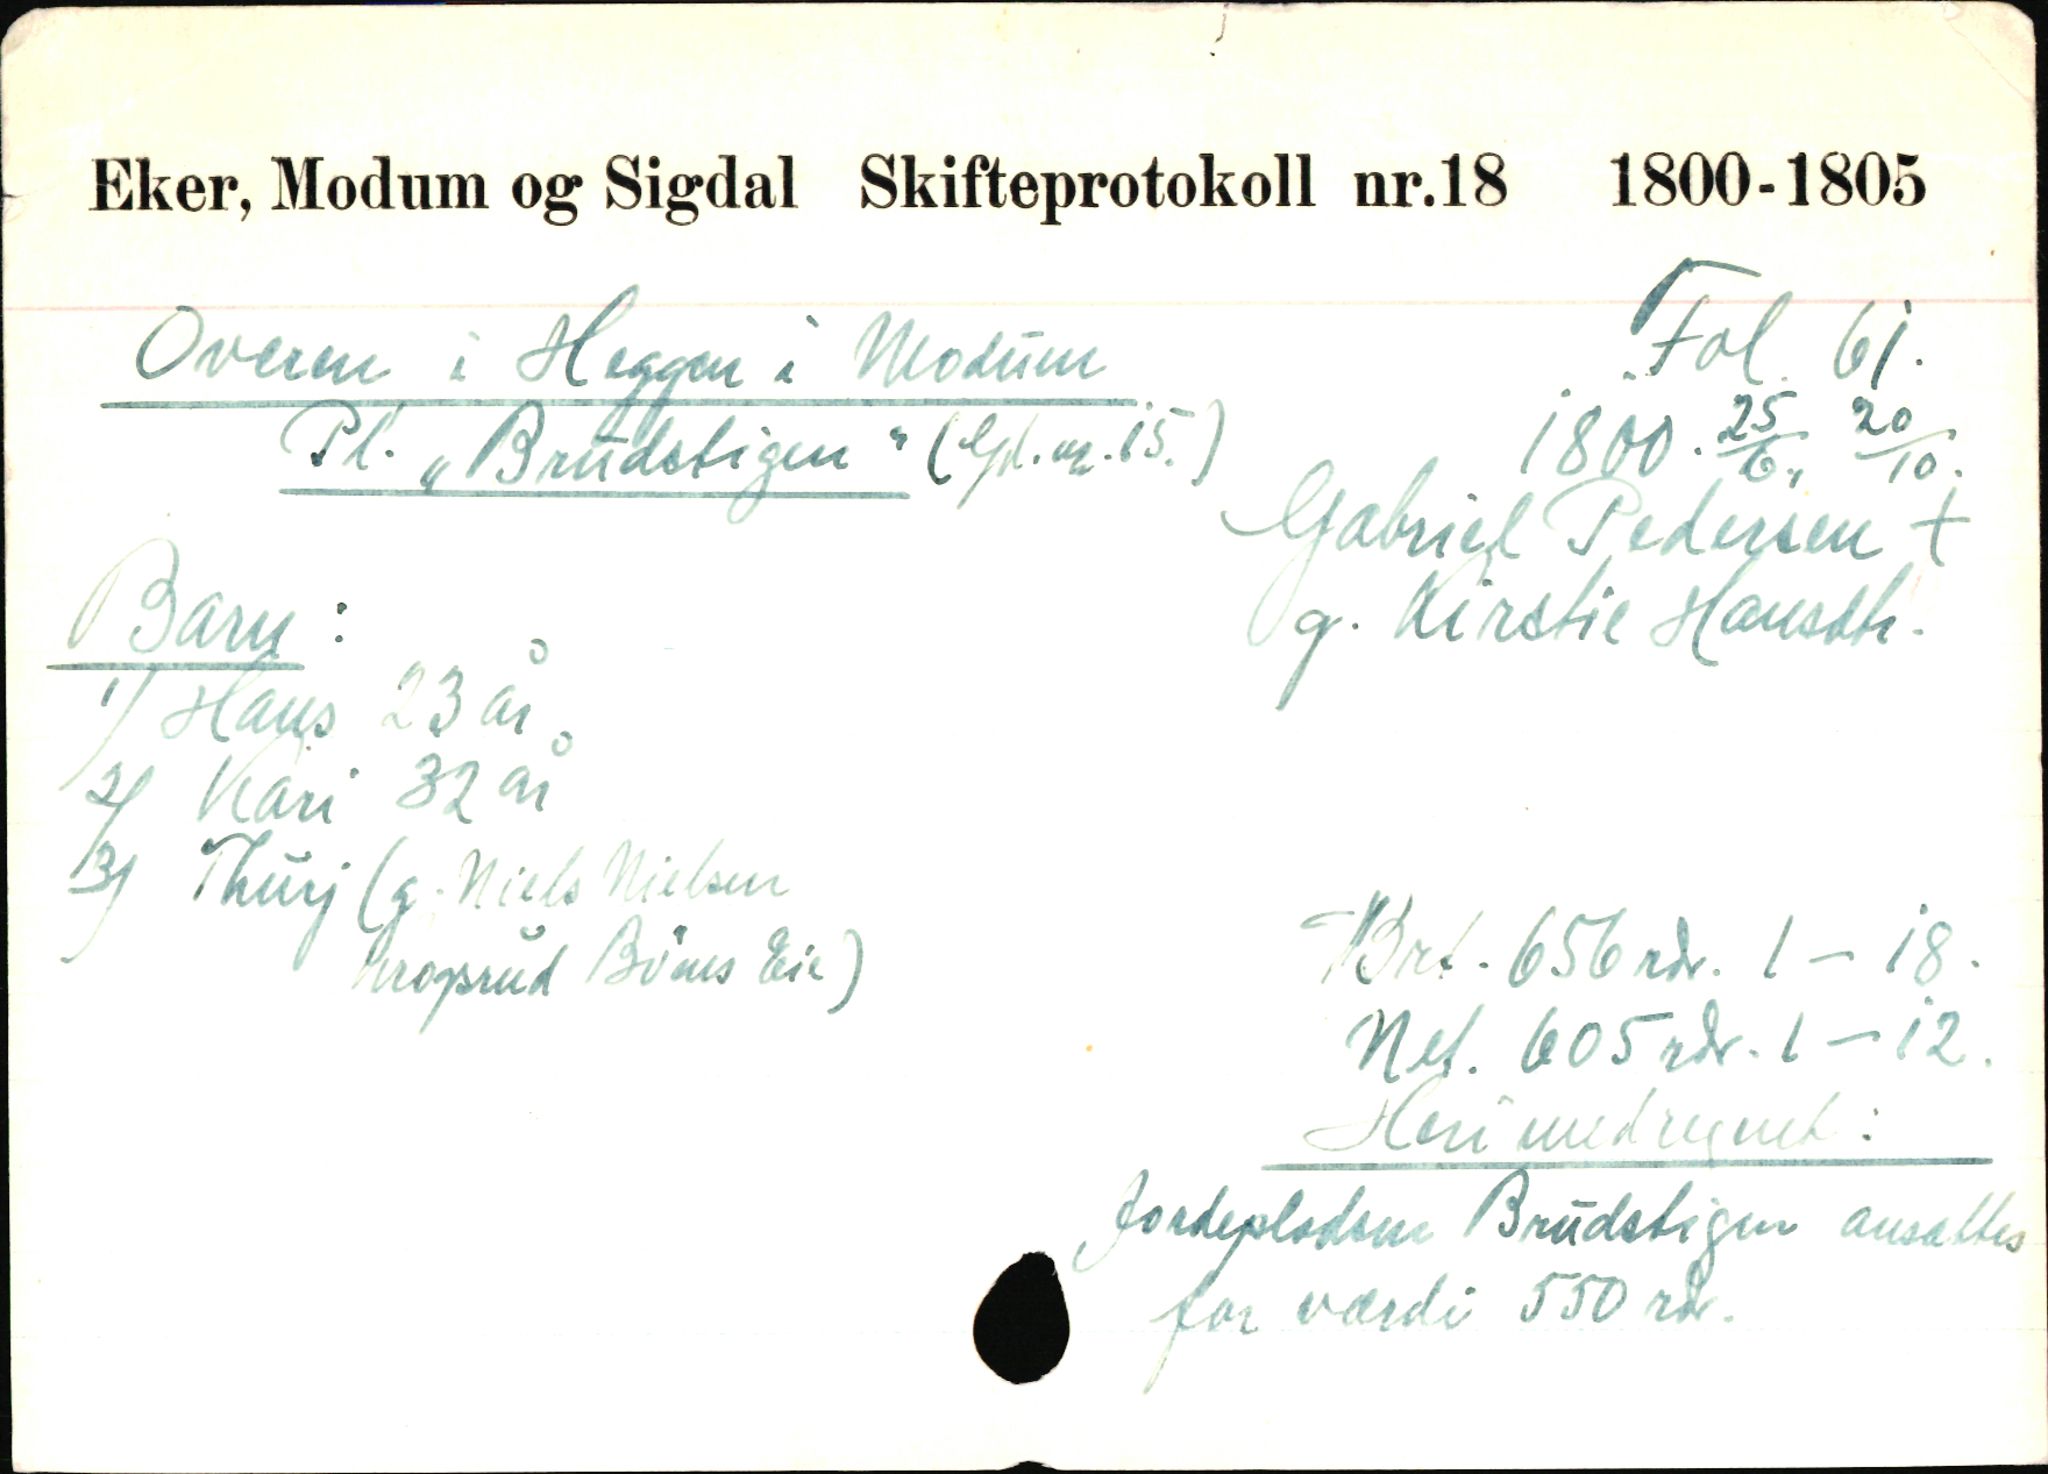 Eker, Modum og Sigdal Skifteprotokoll nr.18 1800-1805
Overen i Heggen i Modum
Pl. „Brudstigen" (Gd. nr. 15.)
Fol. 61.
1800. 25/6, 20/10.
Gabriel Pedersen +
g. Kirstie Hansdtr.
Barn:
1/ Hans 23 år
2/ Kari 32 år
3/ Thurj (g. Niels Nielsen
Krogsrud Böens Eie)
Brt. 656 rdr. 1 - 18.
Net. 605 rdr. 1 - 12.
Heri medregnet:
Jordeplodsen Brudstigen ansattes
for værdi 550 rdr.